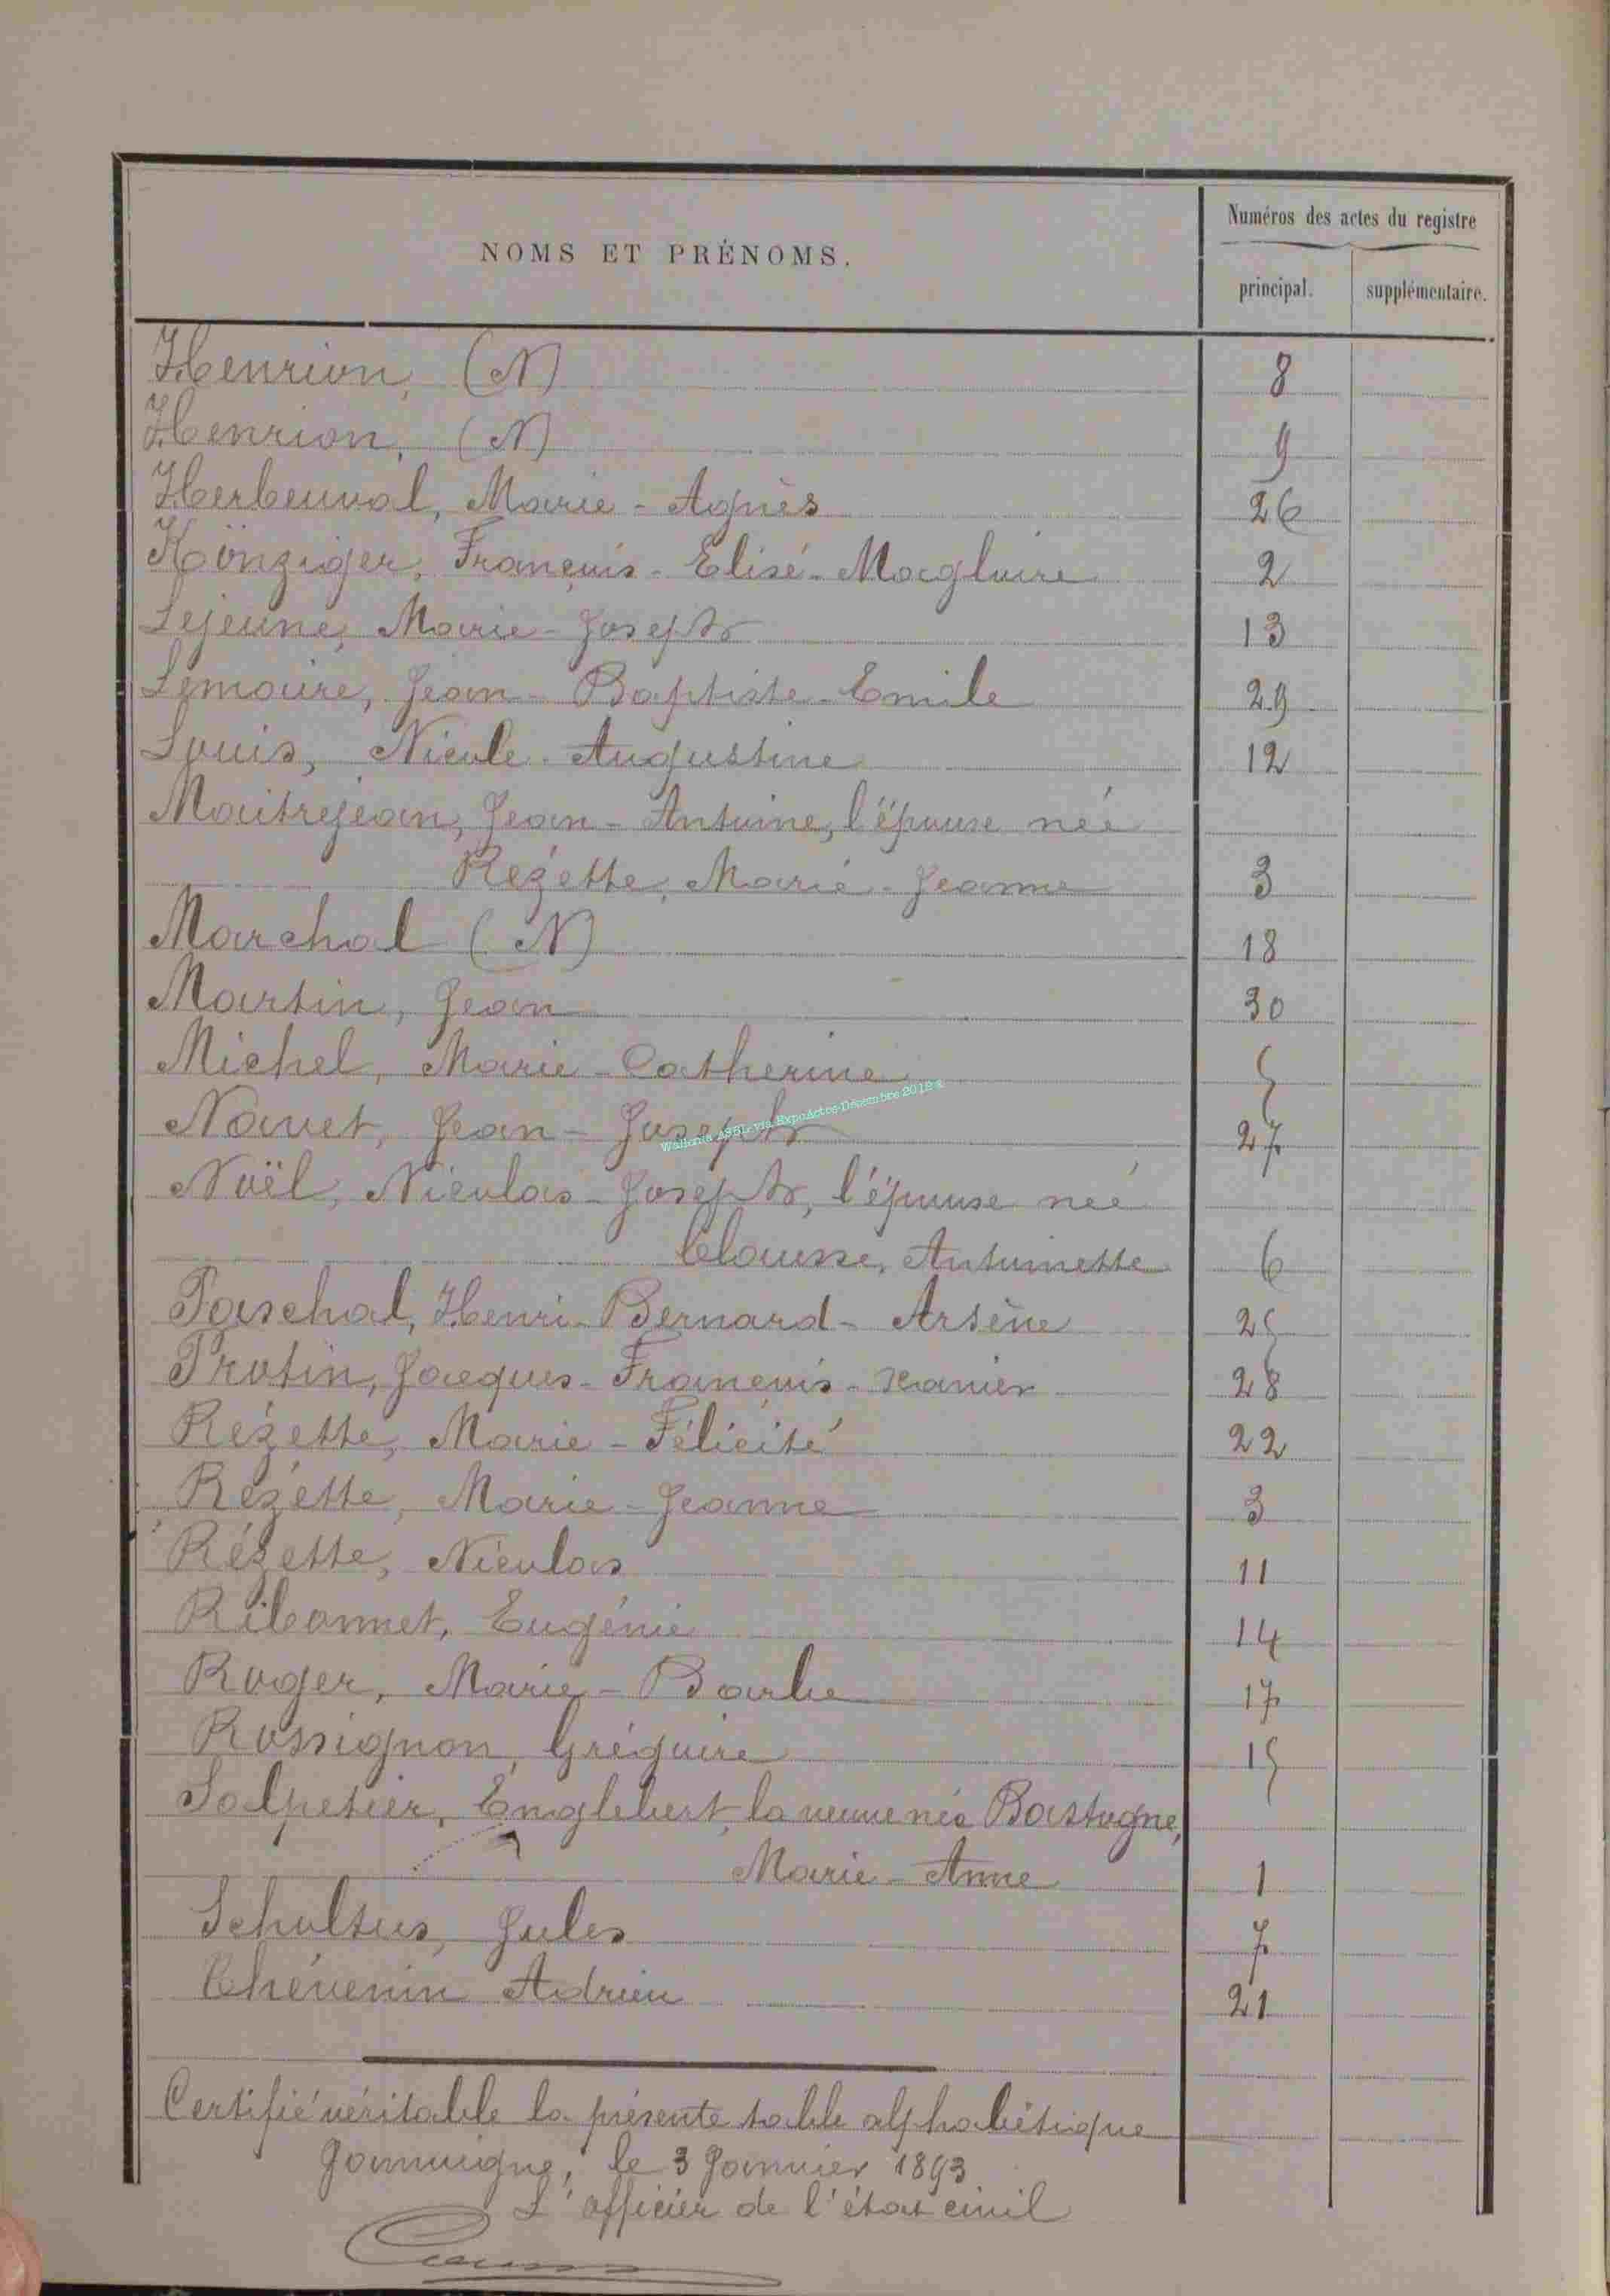 NOMS ET PRÉNOMS.
Numéros des actes du registre
principal.
supplémentaire.
Henrion, (N) 8
Henrion, (N) 9
Herbeuval, Marie - Agnès 26
Könziger, François - Elisé - Magloire 2
Lejeune, Marie - Joseph 13
Lemaire, Jean - Baptiste - Emile 29
Louis, Nicole - Augustine 12
Maitrejean, Jean - Antoine, l'épouse née
Rezette, Marie - Jeanne 3
Marchal (N) 18
Martin, Jean 30
Michel, Marie - Catherine 5
Navet, Jean - Joseph 27
Wallonia ASBL via ExpoActes-Décembre 2018
Noël, Nicolas - Joseph, l'épouse née
Clausse, Antoinette 6
Paschal, Henri - Bernard - Arsène 25
Protin, Jacques - François - Xavier 28
Rézette, Marie - Félicité 22
Rézette, Marie - Jeanne 3
Rézette, Nicolas 11
Ribonnet, Eugénie 14
Roger, Marie - Barbe 17
Rossignon, Grégoire 15
Salpetier, Englebert, la veuve née Bastogne,
Marie - Anne 1
Schultus, Jules 7
Thévenin Adrien 21
Certifié véritable la présente table alphabétique
Jamoigne, le 3 Janvier 1893
L'officier de l'état civil